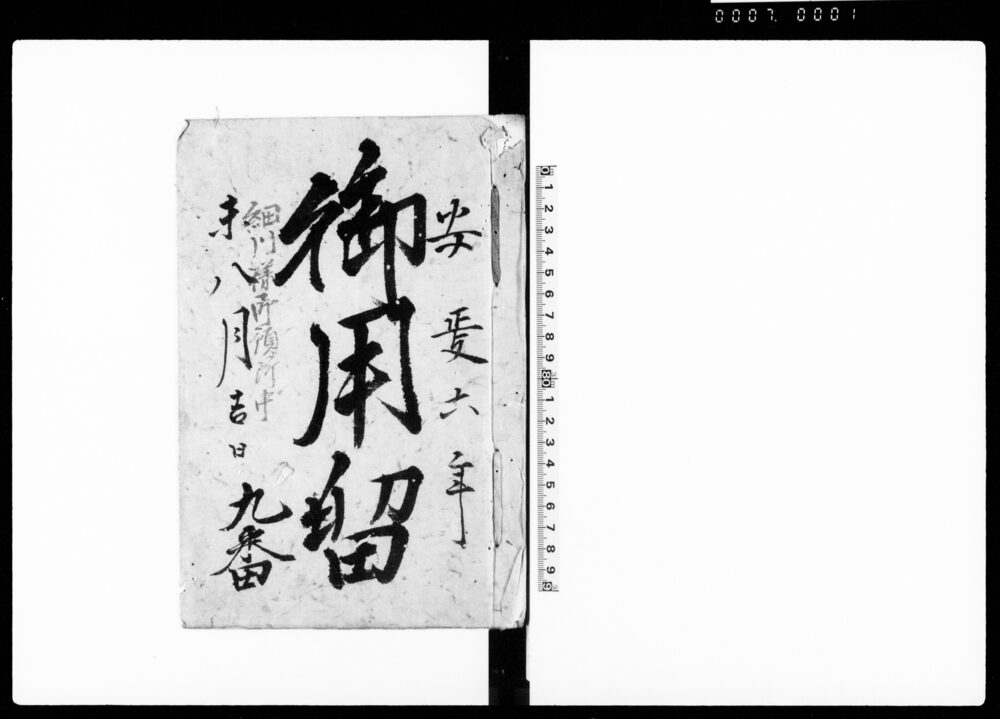 0007. 0001
安政六年
御用留
細川様御預所中
未八月吉日
九番
0 1 2 3 4 5 6 7 8 9 10 1 2 3 4 5 6 7 8 9